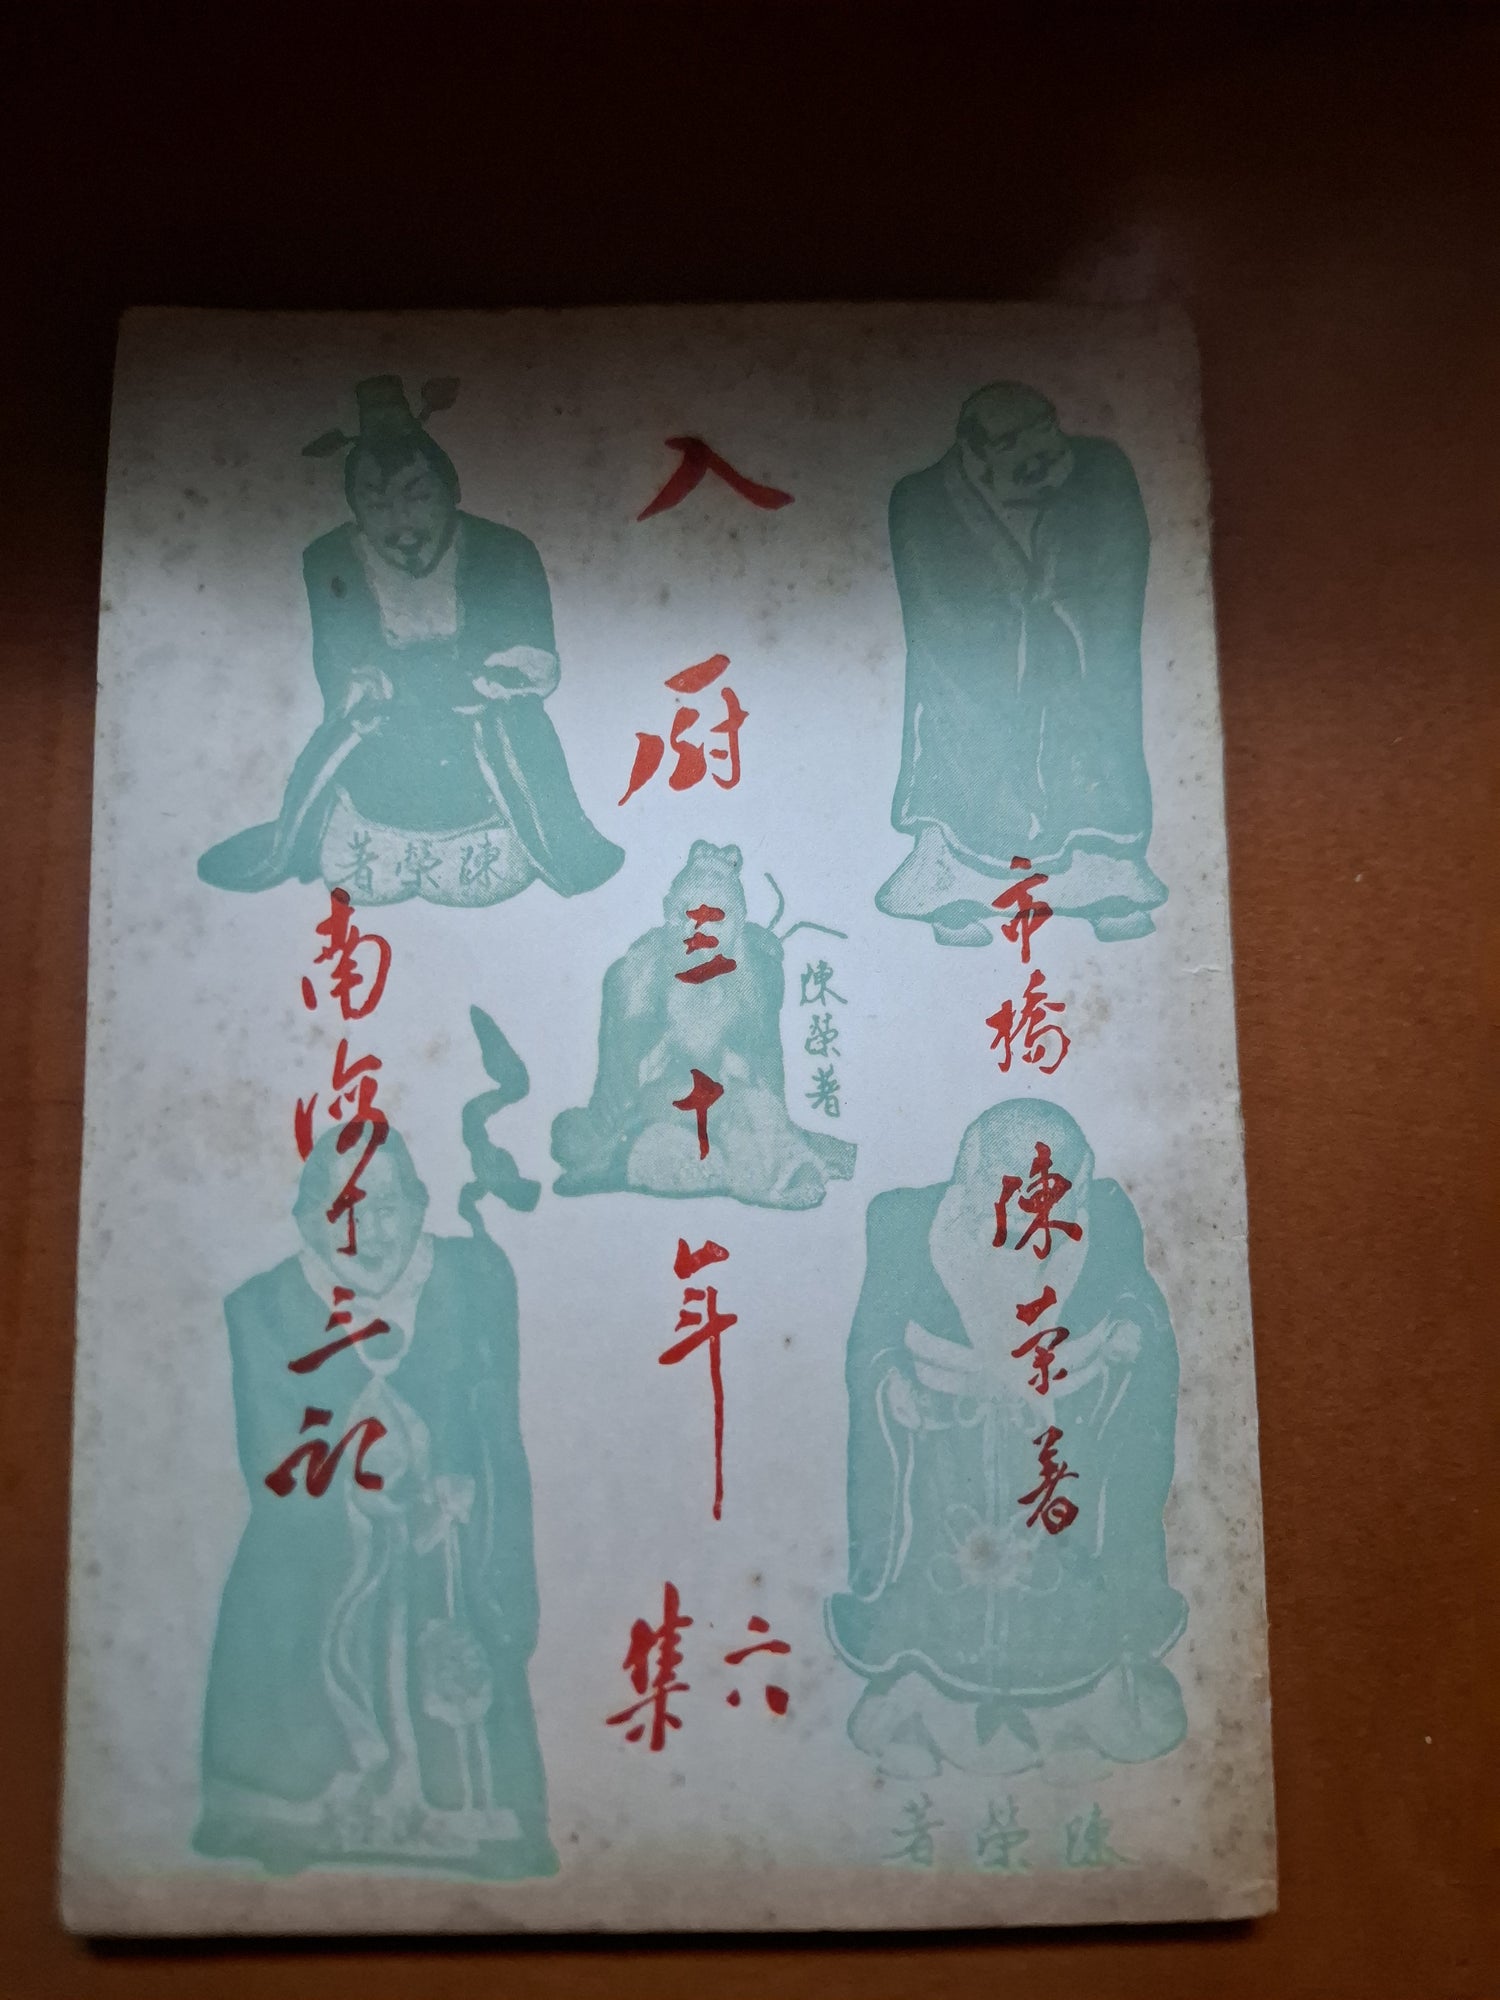 市橋 陳榮著
入厨三十年
六集
南海十三郎
陳榮著
陳榮著
陳榮著